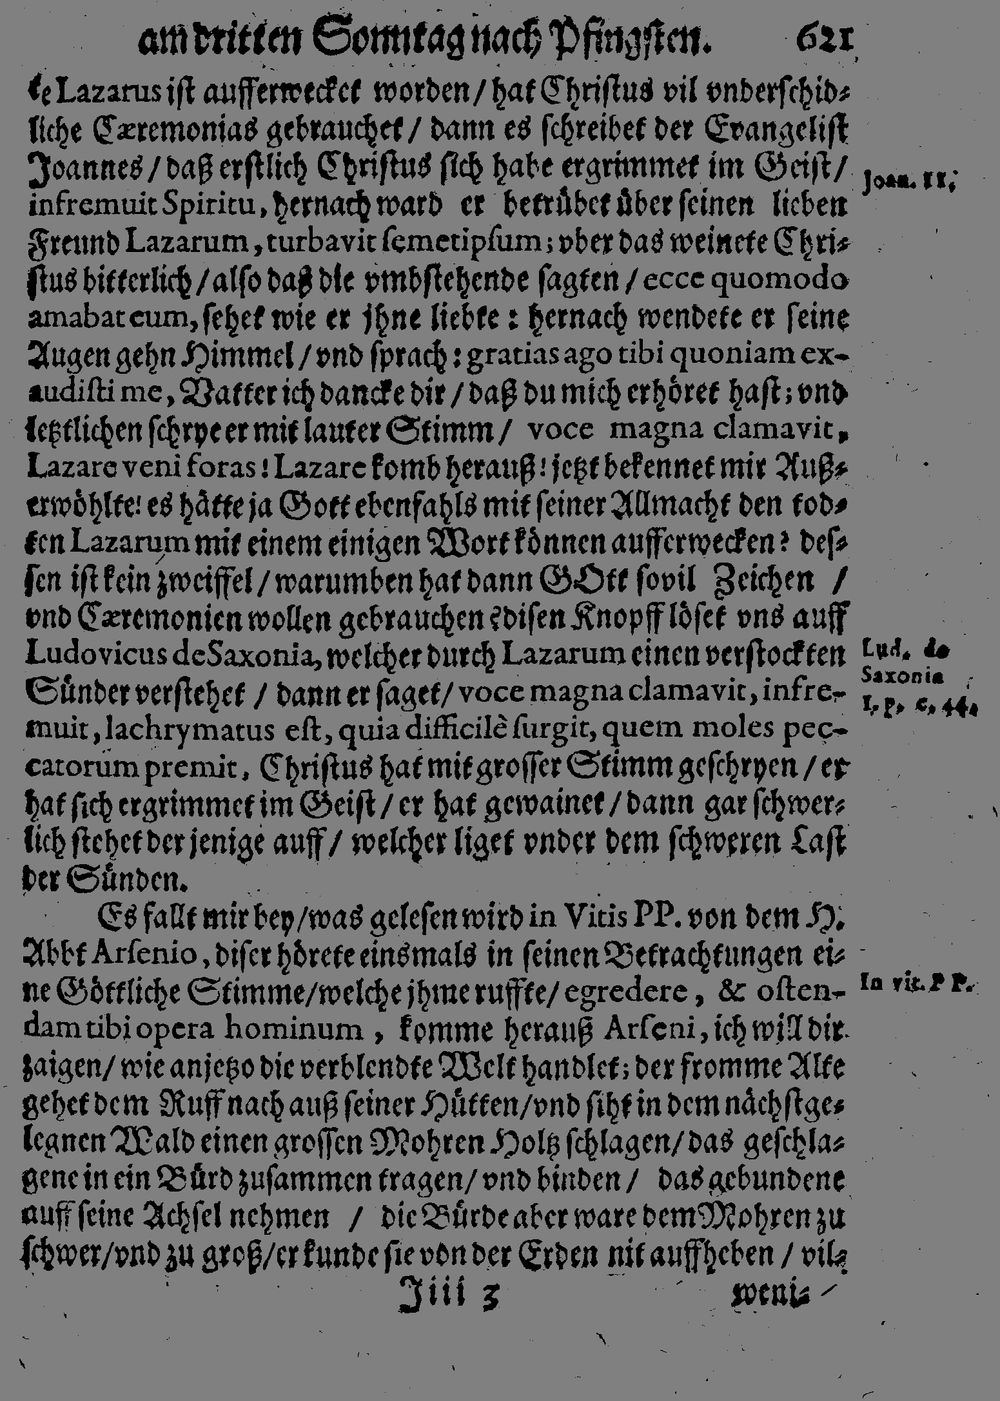 am dritten Sonntag nach Pfingsten. 621
te Lazarus ist aufferwecket worden / hat Christus vil vnderschid-
liche Cæremonias gebrauchet / dann es schreibet der Evangelist
Joannes / daß erstlich Christus sich habe ergrimmet im Geist /
Joan. 11.
infremuit Spiritu, hernach ward er betrübet über seinen lieben
Freund Lazarum, turbavit semetipsum; vber das weinete Chri-
stus bitterlich / also daß die vmbstehende sagten / ecce quomodo
amabat eum, sehet wie er jhne liebte : hernach wendete er seine
Augen gehn Himmel / vnd sprach : gratias ago tibi quoniam ex-
audisti me, Vatter ich dancke dir / daß du mich erhöret hast; vnd
letztlichen schrye er mit lauter Stimm / voce magna clamavit,
Lazare veni foras! Lazare komb herauß! jetzt bekennet mir Auß-
erwöhlte! es hätte ja Gott ebenfahls mit seiner Allmacht den tod-
ten Lazarum mit einem einigen Wort können aufferwecken? des-
sen ist kein zweiffel / warumben hat dann GOtt sovil Zeichen /
vnd Cæremonien wollen gebrauchen? disen Knopff löset vns auff
Ludovicus de Saxonia, welcher durch Lazarum einen verstockten
Lud. de
Saxonia
1. p. c. 44.
Sünder verstehet / dann er saget / voce magna clamavit, infre-
muit, lachrymatus est, quia difficilè surgit, quem moles pec-
catorum premit, Christus hat mit grosser Stimm geschryen / er
hat sich ergrimmet im Geist / er hat gewainet / dann gar schwer-
lich stehet der jenige auff / welcher liget vnder dem schweren Last
der Sünden.
Es fallt mir bey / was gelesen wird in Vitis PP. von dem H.
Abbt Arsenio, diser hörete einsmals in seinen Betrachtungen ei-
ne Göttliche Stimme / welche jhme ruffte / egredere, & osten-
In vit. PP.
dam tibi opera hominum, komme herauß Arseni, ich will dir
zaigen / wie anjetzo die verblendte Welt handlet; der fromme Alte
gehet dem Ruff nach auß seiner Hütten / vnd siht in dem nächstge-
legnen Wald einen grossen Mohren Holtz schlagen / das geschla-
gene in ein Bürd zusammen tragen / vnd binden / das gebundene
auff seine Achsel nehmen / die Bürde aber ware dem Mohren zu
schwer / vnd zu groß / er kunde sie von der Erden nit auffheben / vil-
Jiii 3 weni-